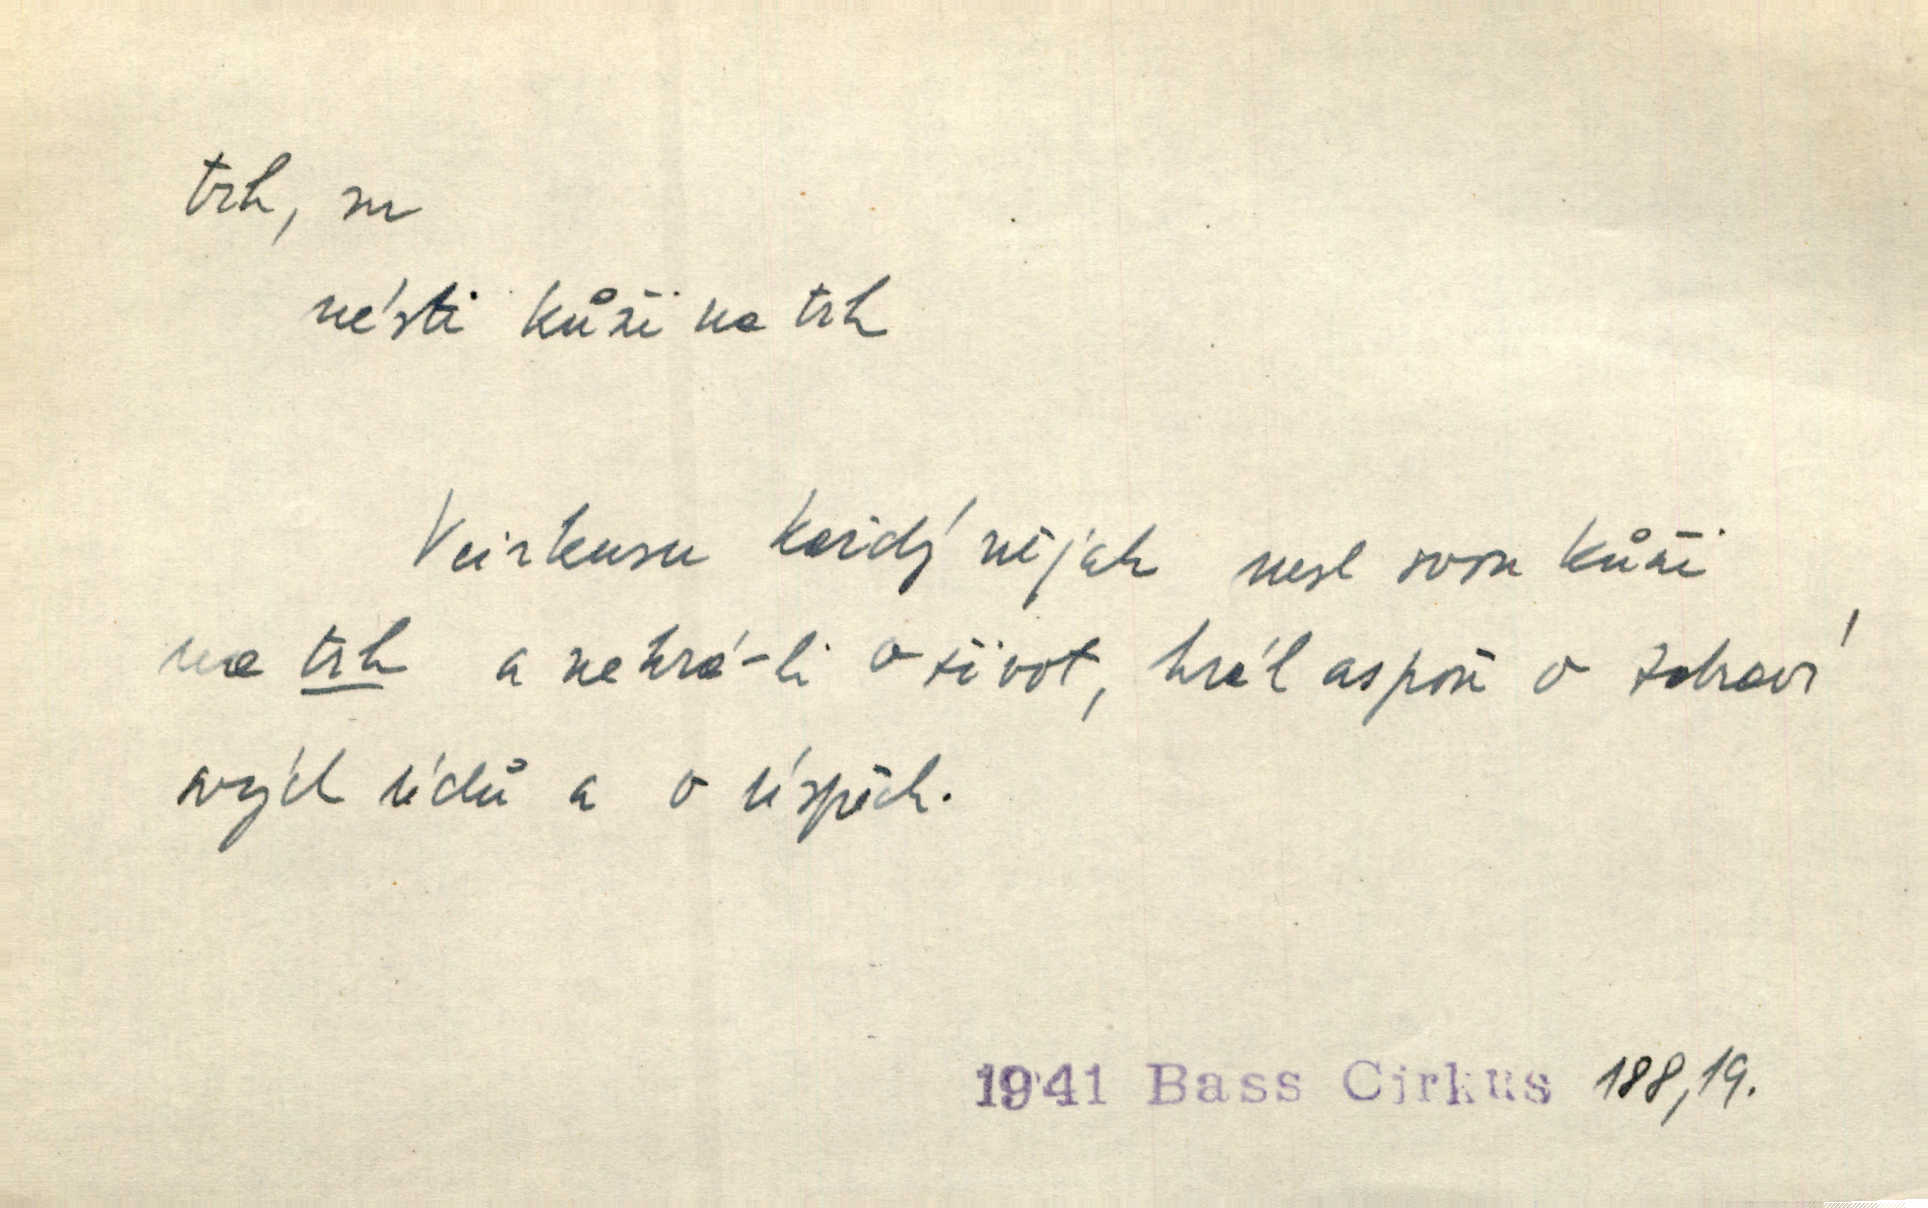 trh, m
nésti kůži na trh
V cirkusu každý nějak nesl svou kůži
na trh a nehrá-li o život, hrál aspoň o zdraví
svých údů a o úspěch.
1941 Bass Cirkus 188,19.